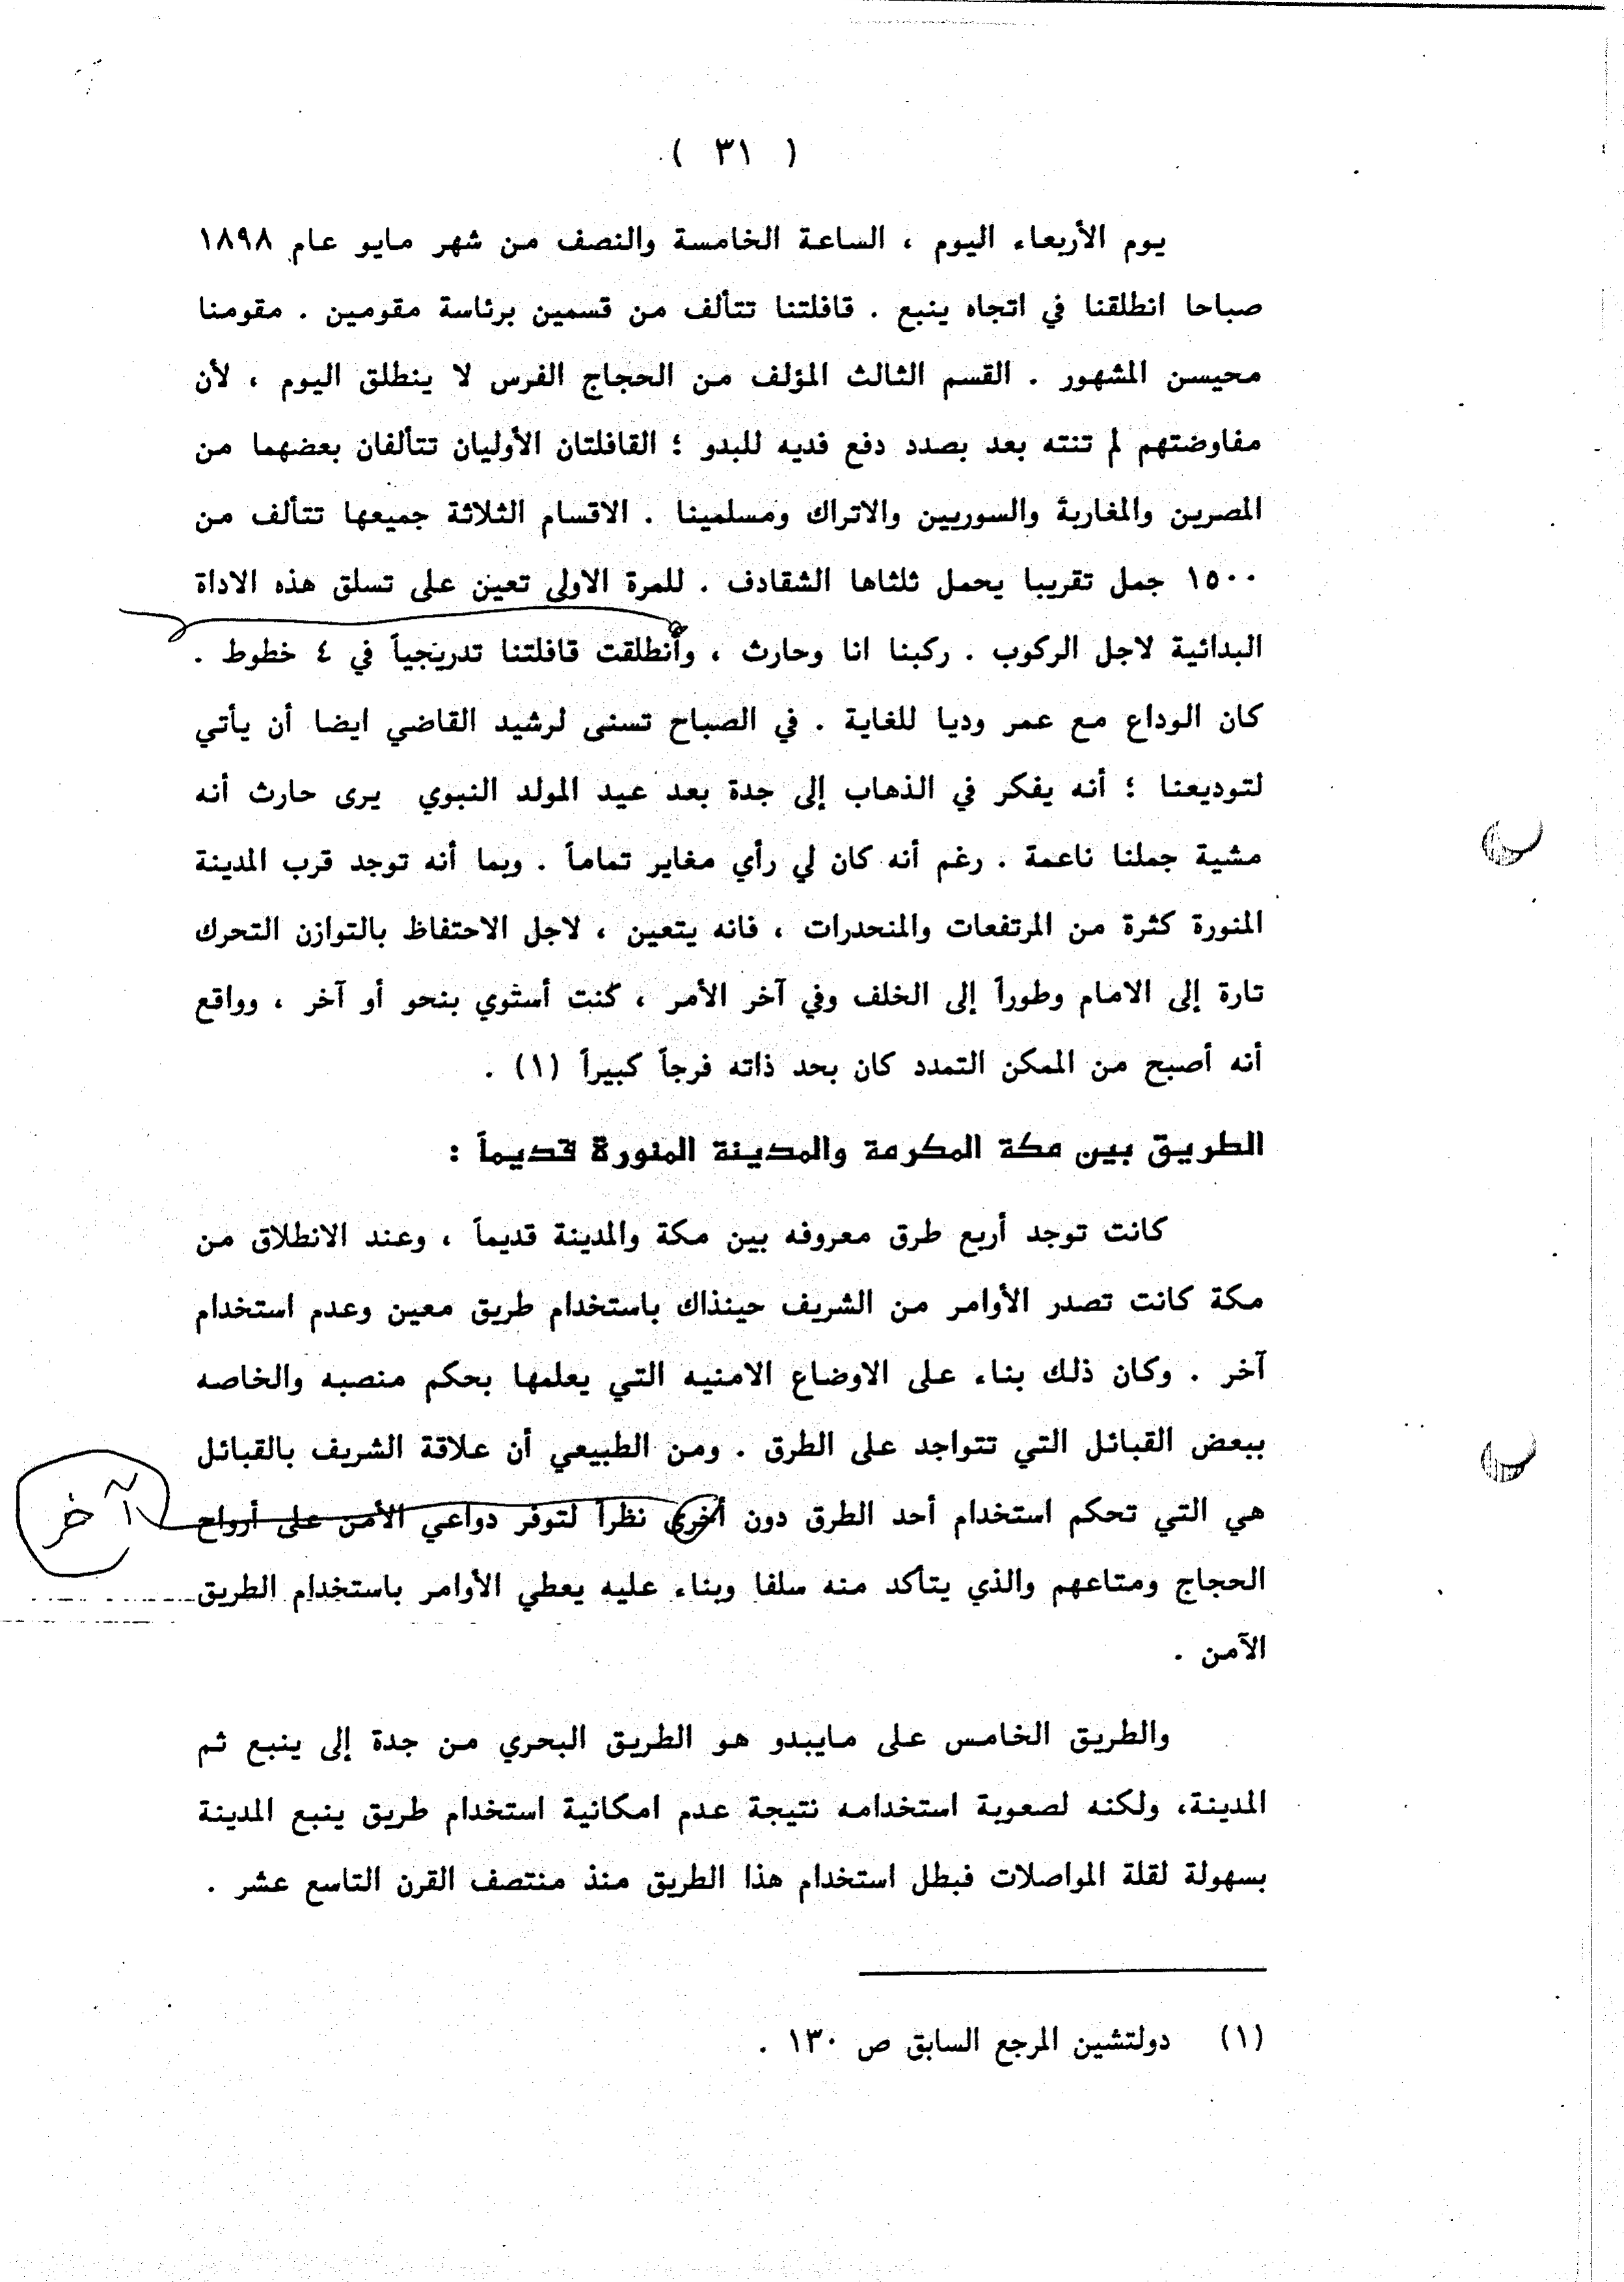 ( ٣١ )
يوم الأربعاء اليوم ، الساعة الخامسة والنصف من شهر مايو عام ١٨٩٨
صباحا انطلقنا في اتجاه ينبع . قافلتنا تتألف من قسمين برئاسة مقومين . مقومنا
محيسن المشهور . القسم الثالث المؤلف من الحجاج الفرس لا ينطلق اليوم ، لأن
مفاوضتهم لم تنته بعد بصدد دفع فديه للبدو ؛ القافلتان الأوليان تتألفان بعضهما من
المصرين والمغاربة والسوريين والاتراك ومسلمينا . الاقسام الثلاثة جميعها تتألف من
١٥٠٠ جمل تقريبا يحمل ثلثاها الشقادف . للمرة الاولى تعين على تسلق هذه الاداة
البدائية لاجل الركوب . ركبنا انا وحارث ، وأنطلقت قافلتنا تدريجياً في ٤ خطوط .
كان الوداع مع عمر وديا للغاية . في الصباح تسنى لرشيد القاضي ايضا أن يأتي
لتوديعنا ؛ أنه يفكر في الذهاب إلى جدة بعد عيد المولد النبوي يرى حارث أنه
مشية جملنا ناعمة . رغم أنه كان لي رأي مغاير تماماً . وبما أنه توجد قرب المدينة
المنورة كثرة من المرتفعات والمنحدرات ، فانه يتعين ، لاجل الاحتفاظ بالتوازن التحرك
تارة إلى الامام وطوراً إلى الخلف وفي آخر الأمر ، كنت أستوي بنحو أو آخر ، وواقع
أنه أصبح من الممكن التمدد كان بحد ذاته فرجاً كبيراً (١) .
الطريق بين مكة المكرمة والمدينة المنورة قديماً :
كانت توجد أربع طرق معروفه بين مكة والمدينة قديماً ، وعند الانطلاق من
مكة كانت تصدر الأوامر من الشريف حينذاك باستخدام طريق معين وعدم استخدام
آخر . وكان ذلك بناء على الاوضاع الامنيه التي يعلمها بحكم منصبه والخاصه
ببعض القبائل التي تتواجد على الطرق . ومن الطبيعي أن علاقة الشريف بالقبائل
هي التي تحكم استخدام أحد الطرق دون أخرى نظراً لتوفر دواعي الأمن على أرواح
آخر
الحجاج ومتاعهم والذي يتأكد منه سلفا وبناء عليه يعطي الأوامر باستخدام الطريق
الآمن .
والطريق الخامس على مايبدو هو الطريق البحري من جدة إلى ينبع ثم
المدينة، ولكنه لصعوبة استخدامه نتيجة عدم امكانية استخدام طريق ينبع المدينة
بسهولة لقلة المواصلات فبطل استخدام هذا الطريق منذ منتصف القرن التاسع عشر .
(١) دولتشين المرجع السابق ص ١٣٠ .